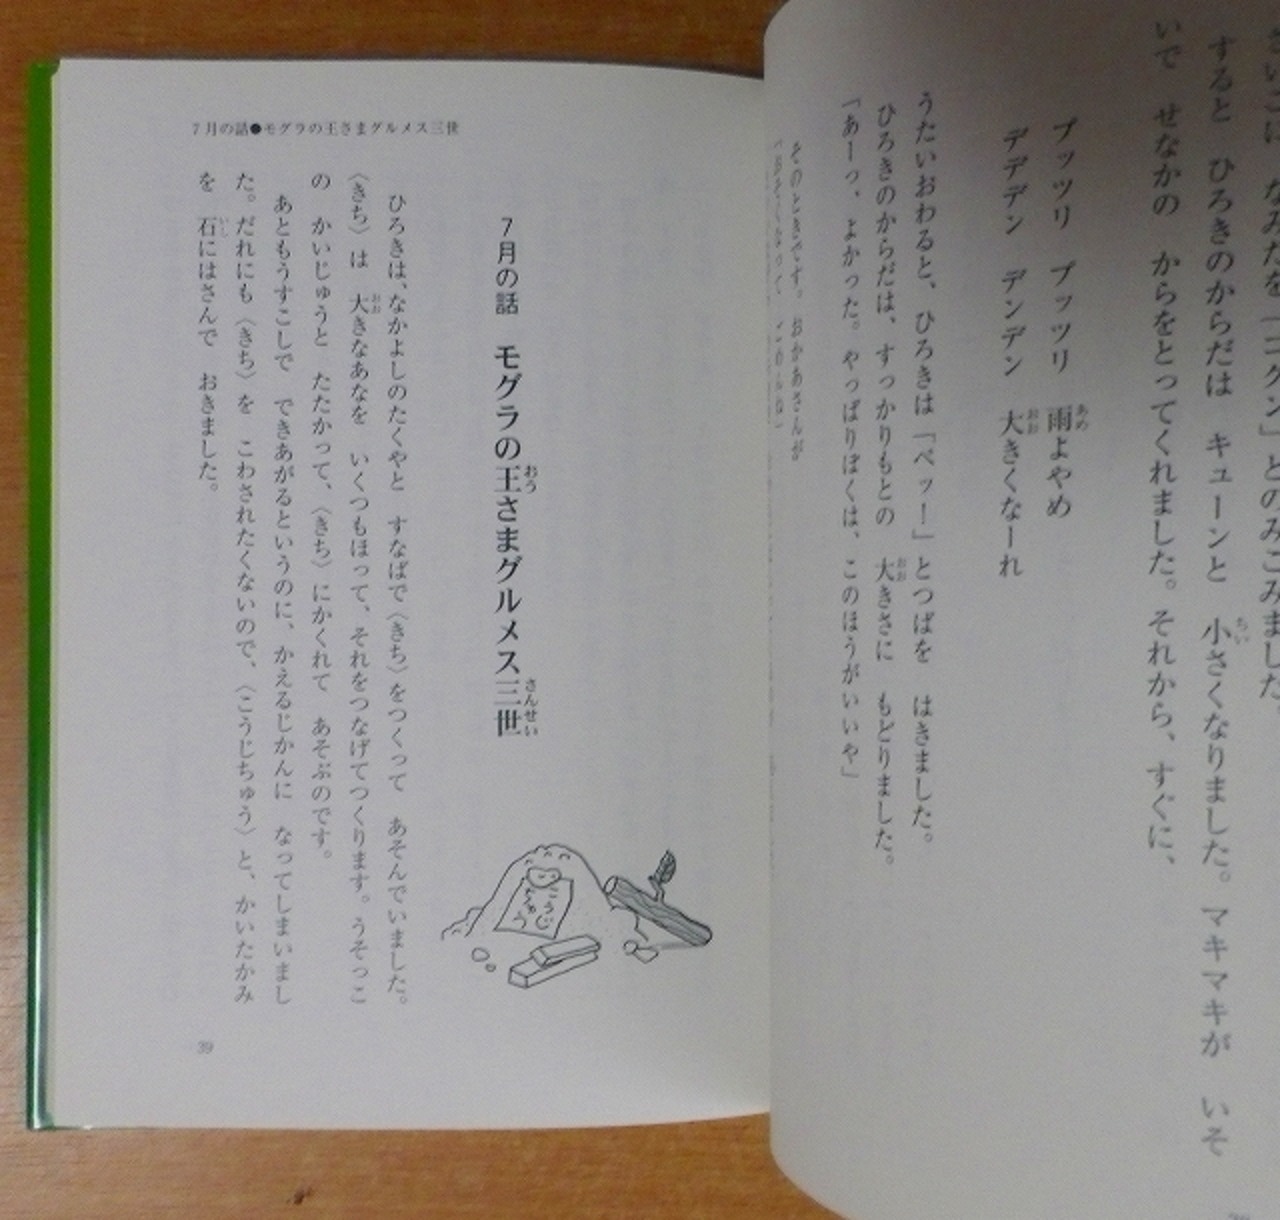 さいごに なみだを「ゴクン」とのみこみました
すると ひろきのからだは キューンと 小さくなりました。マキマキが いそ
いで せなかの からをとってくれました。それから、すぐに、
プッツリ プッツリ 雨よやめ
デデデン デンデン 大きくなーれ
うたいおわると、ひろきは「ペッ！」とつばを はきました。
ひろきのからだは、すっかりもとの 大きさに もどりました。
「あーっ、よかった。やっぱりぼくは、このほうがいいや」
そのときです。おかあさんが
7月の話●モグラの王さまグルメス三世
7月の話 モグラの王さまグルメス三世
こうじちゅう
ひろきは、なかよしのたくやと すなばで〈きち〉をつくって あそんでいました。
〈きち〉は 大きなあなを いくつもほって、それをつなげてつくります。うそっこ
の かいじゅうと たたかって、〈きち〉にかくれて あそぶのです。
あともうすこしで できあがるというのに、かえるじかんに なってしまいまし
た。だれにも〈きち〉を こわされたくないので、〈こうじちゅう〉と、かいたかみ
を 石にはさんで おきました。
39